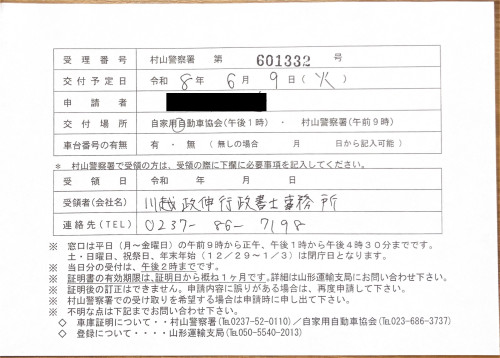 受理番号 村山警察署 第 601332 号
交付予定日 令和 8年 6月 9日(火)
申請者
交付場所 自家用自動車協会(午後1時) ・ 村山警察署(午前9時)
車台番号の有無 有 ・ 無(無しの場合 月 日から記入可能)
* 村山警察署で受領の方は、受領の際に下欄に必要事項を記入してください。
受領日 令和 年 月 日
受領者(会社名) 川越政伸行政書士事務所
連絡先(TEL) 0237-86-7198
※ 窓口は平日(月~金曜日)の午前9時から正午、午後1時から午後4時30分までです。
土・日曜日、祝祭日、年末年始(12/29~1/3)は閉庁日となります。
※ 当日分の受付は、午後2時までです。
※ 証明書の有効期限は、証明日から概ね1ヶ月です。詳細は山形運輸支局にお問い合わせ下さい。
※ 証明後の訂正はできません。申請内容に誤りがある場合は、再度申請して下さい。
※ 村山警察署での受け取りを希望する場合は申請時に申し出て下さい。
※ 不明な点は下記までお問い合わせ下さい。
◇ 車庫証明について・・村山警察署(Tel0237-52-0110)/自家用自動車協会(Tel023-686-3737)
◇ 登録について・・・・山形運輸支局(Tel050-5540-2013)